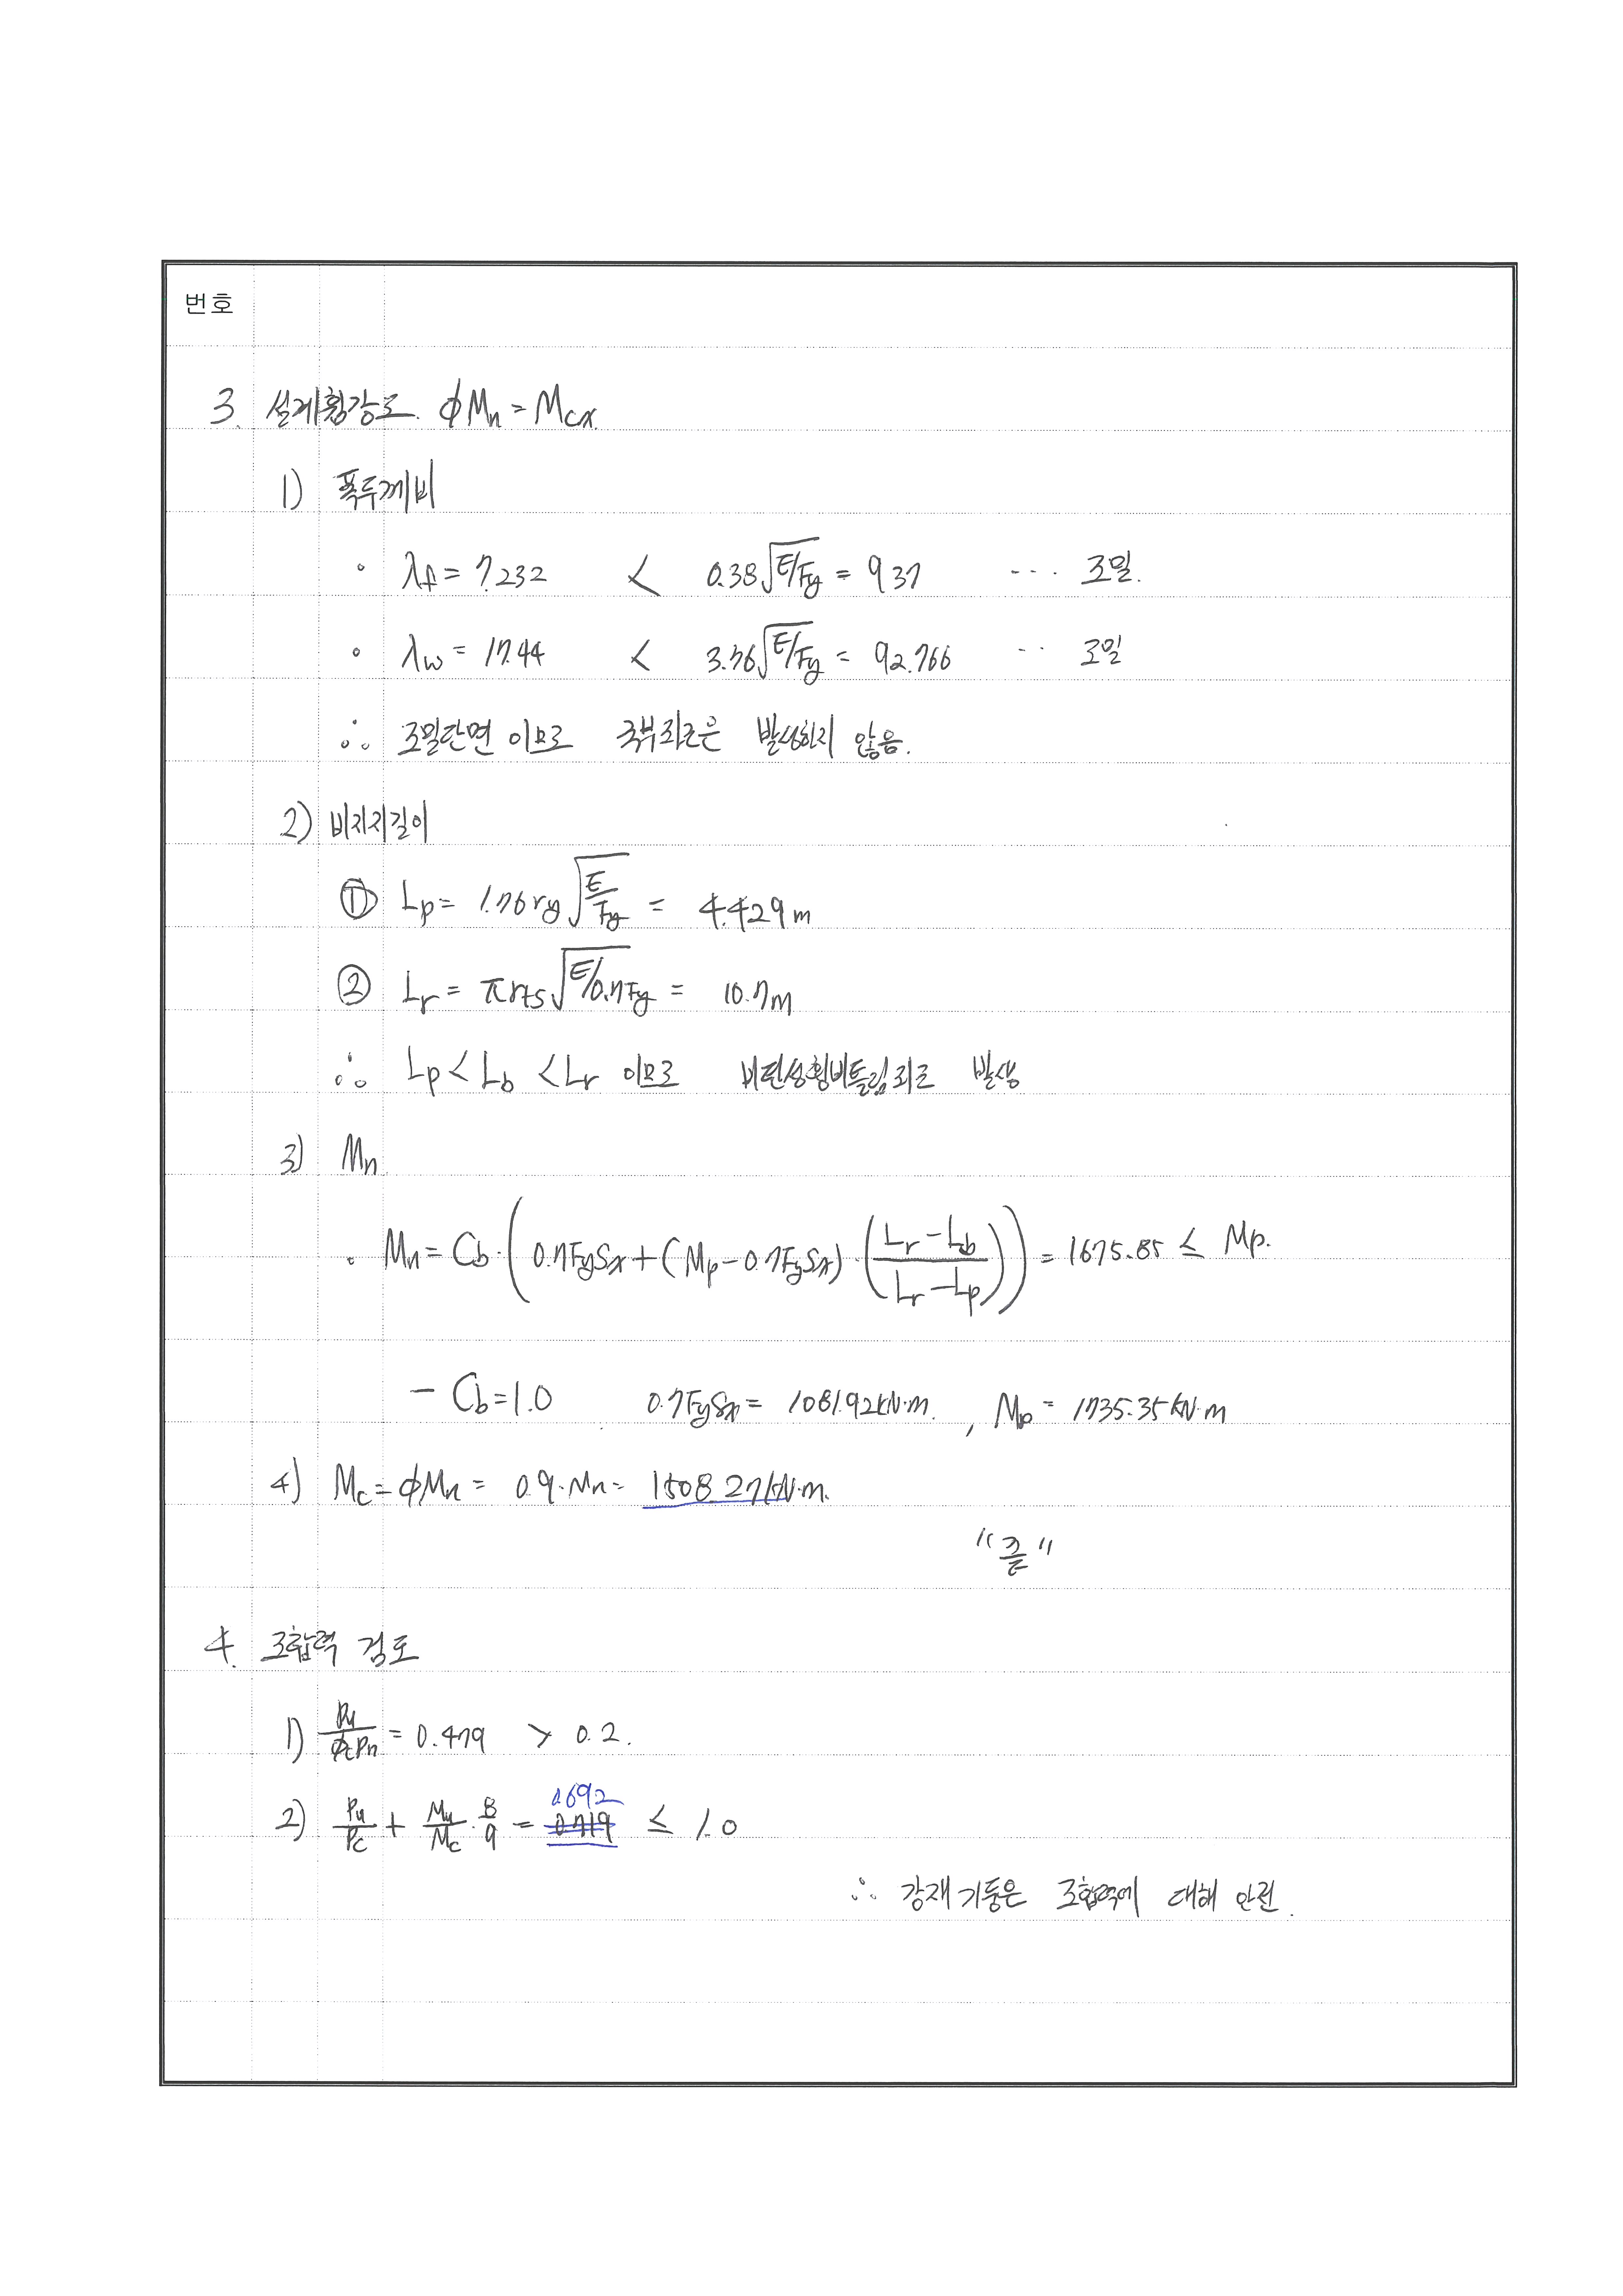 번호
3. 설계휨강도. φMn = Mcx.
1) 폭두께비
• λf = 7.232 < 0.38√E/Fy = 9.37 ··· 조밀.
• λw = 17.44 < 3.76√E/Fy = 92.766 ·· 조밀
∴ 조밀단면 이므로 국부좌굴은 발생하지 않음.
2) 비지지길이
① Lp = 1.76ry√E/Fy = 4.429m
② Lr = πrts√E/0.7Fy = 10.7m
∴ Lp < Lb < Lr 이므로 비탄성횡비틀림좌굴 발생
3) Mn
• Mn = Cb·(0.7FySx + (Mp - 0.7FySx)·((Lr - Lb)/(Lr - Lp))) = 1675.85 ≤ Mp.
- Cb = 1.0 0.7FySx = 1081.92kN·m. , Mp = 1735.35kN·m
4) Mc = φMn = 0.9·Mn = 1508.27kN·m.
"끝"
4. 조합력 검토
1) Pu/φcPn = 0.479 > 0.2.
0.692
2) Pu/Pc + Mu/Mc · 8/9 = 0.719 ≤ 1.0
∴ 강재기둥은 조합력에 대해 안전.